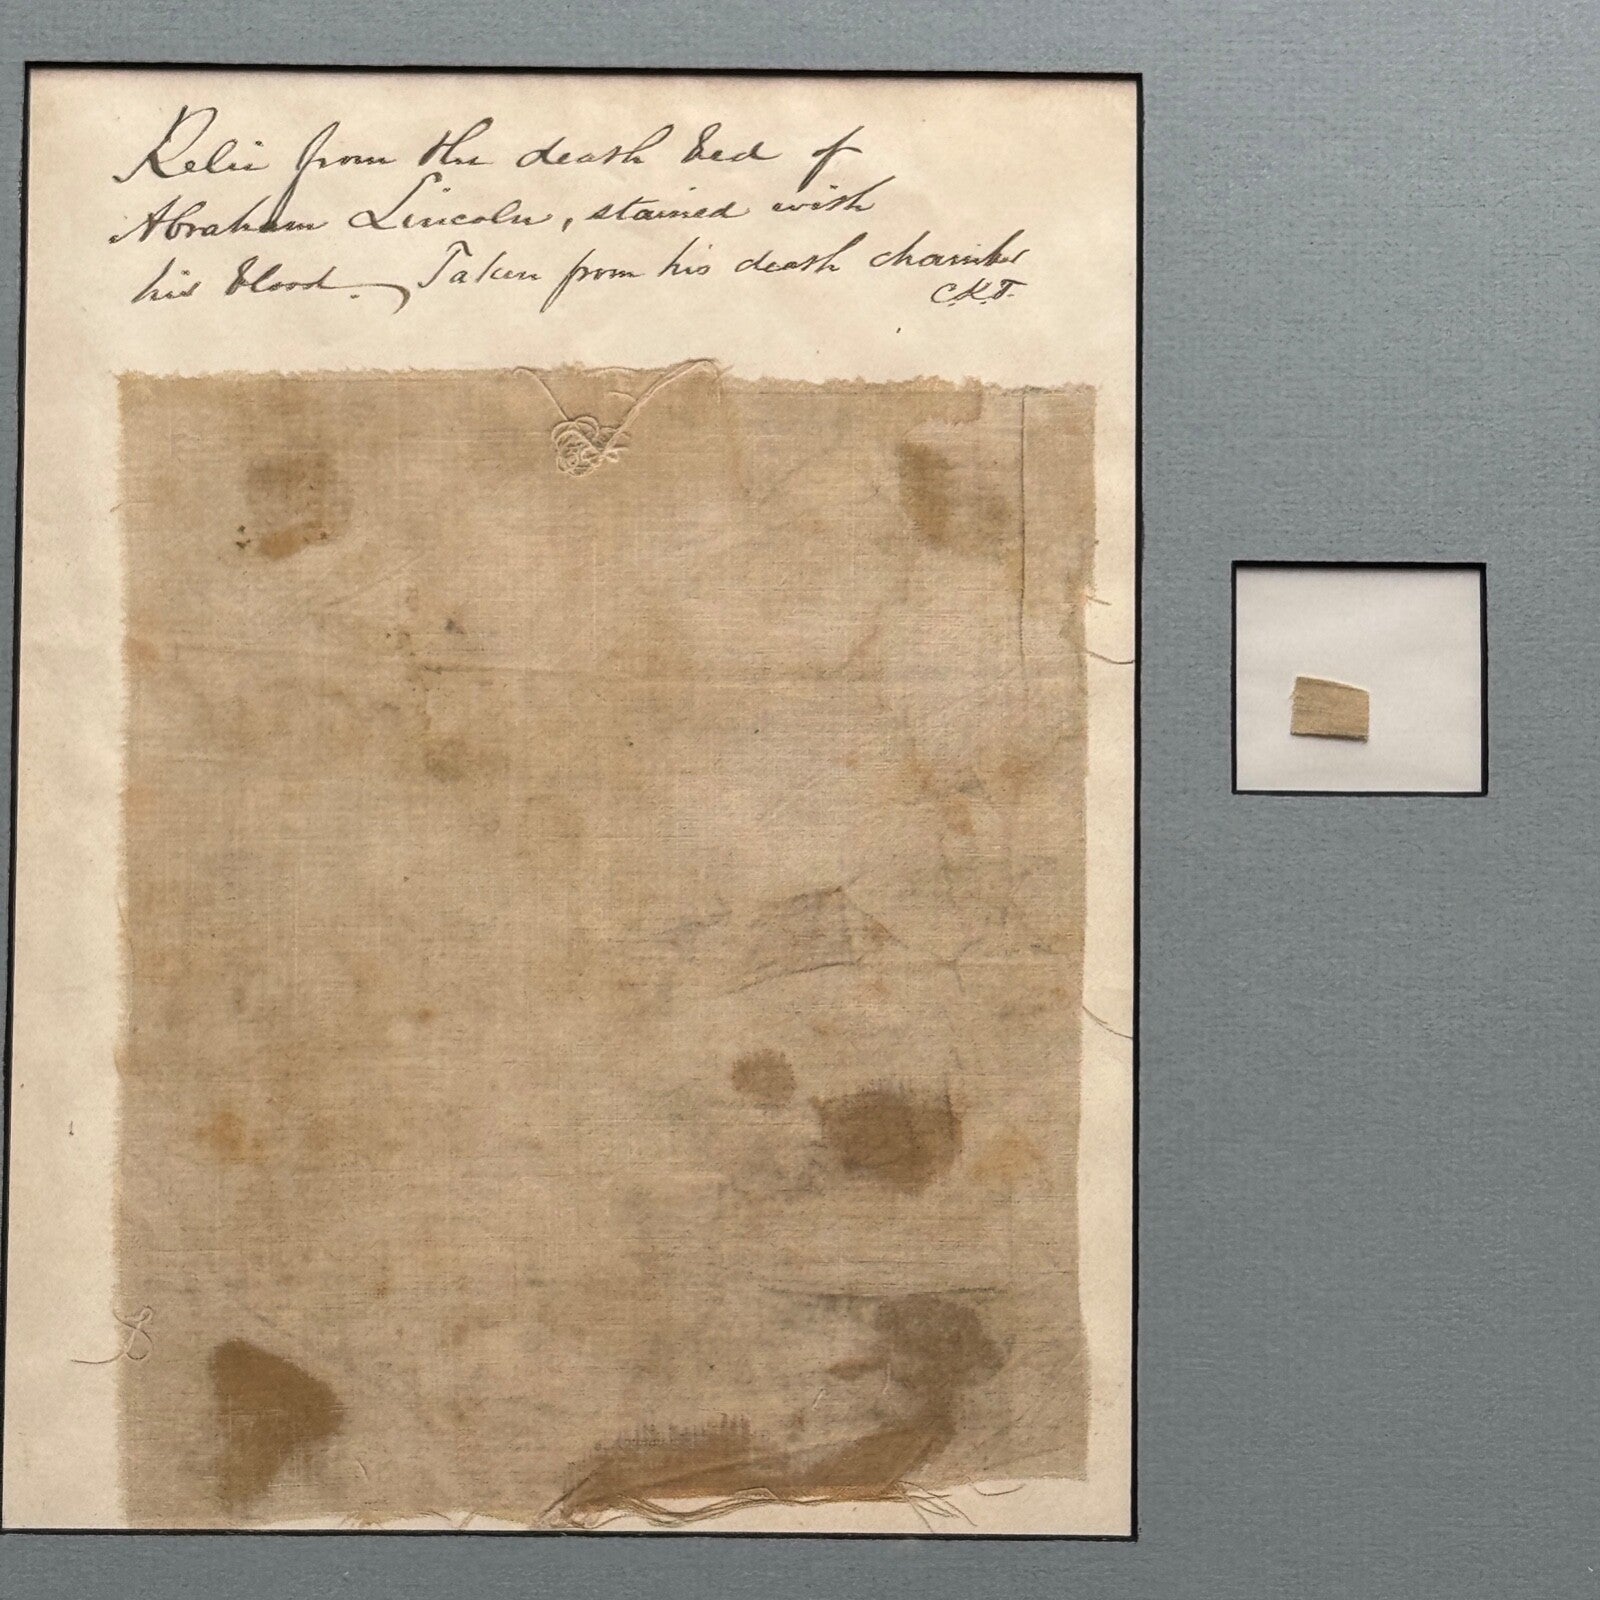 Relic from the death bed of
Abraham Lincoln, stained with
his blood. Taken from his death chamber
C.K.T.